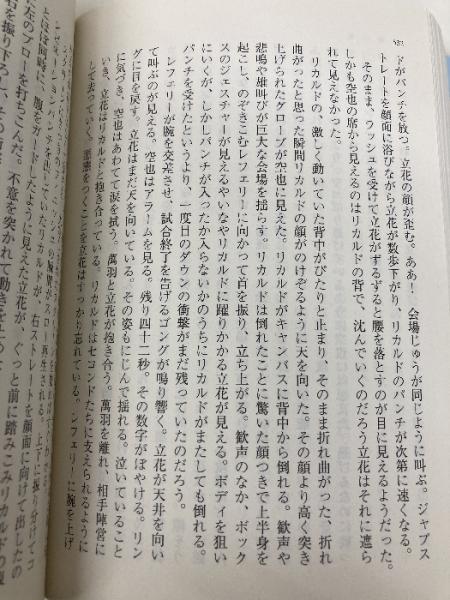 ドがパンチを放つ。立花の顔が歪む。ああ！　会場じゅうが同じように叫ぶ。ジャブス
トレートを顔面に浴びながら立花が数歩下がり、リカルドのパンチが次第に速くなる。
そのまま、ラッシュを受けて立花がずるずると腰を落とすのが目に見えるようだった。
しかも空也の席から見えるのはリカルドの背で、沈んでいくのだろう立花はそれに遮ら
れて見えなかった。
リカルドの、激しく動いていた背中がぴたりと止まり、そのまま折れ曲がった、折れ
曲がったと思った瞬間リカルドの顔がのけぞるように天を向いた。その顔より高く突き
上げられたグローブが空也に見えた。リカルドがキャンバスに背中から倒れる。歓声や
悲鳴や雄叫びが巨大な会場を揺らす。リカルドは倒れたことに驚いた顔つきで上半身を
起こし、のぞきこむレフェリーに向かって首を振り、立ち上がる。歓声のなか、ボック
スのジェスチャーが見えるやいなやリカルドに躍りかかる立花が見える。ボディを狙い
にいく、しかしパンチが入ったか入らないかのうちにリカルドがまたしても倒れる。
パンチを受けたというより、一度目のダウンの衝撃がまだ残っていたのだろう。
レフェリーが腕を交差させ、試合終了を告げるゴングが鳴り響く。立花が天井を向い
て叫ぶのが見える。空也はアラームを見る。残り四十二秒。その数字がぼやける。リン
グに目を戻す。立花はまだ天を向いている。その姿もにじんで揺れる。泣いていること
に気づき、空也はあわてて涙を拭う。萬羽と立花が抱き合う。萬羽を離れ、相手陣営に
いき、立花はリカルドと抱き合っている。リカルドはセコンドたちに支えられるように
して去っていく。悪態をつくことを立花はすっかり忘れている。レフェリーに腕を上げ
ションパンチを出していたリカルドが、右ストレートを顔面に向けて出したの
とほぼ同時に、腹をガードしたように見えた立花が、ぐっと前に踏みこみリカルドの
左のアッパーを打ちこんだ。不意を突かれて動きを